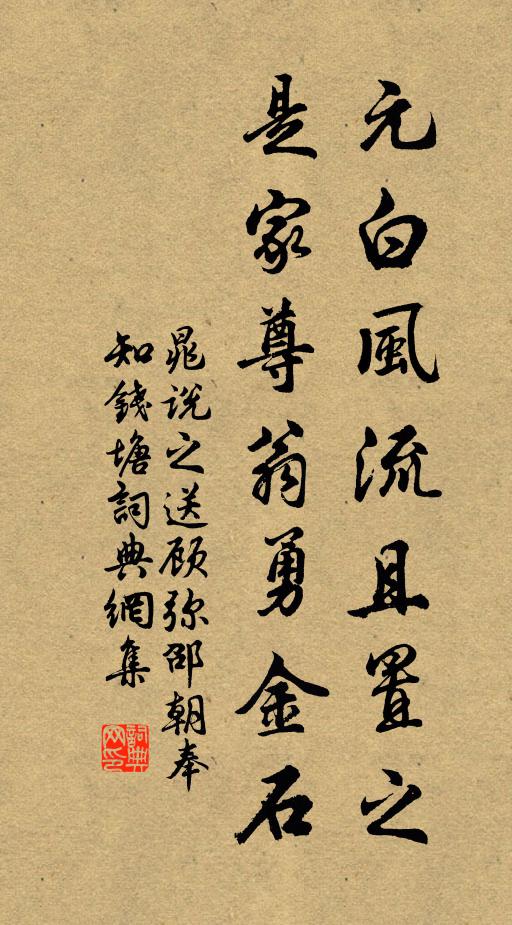 元白風流且置之
是家尊翁勇金石
晁说之送顾弥邵朝奉
知錢塘詞典網集
詞典
网印